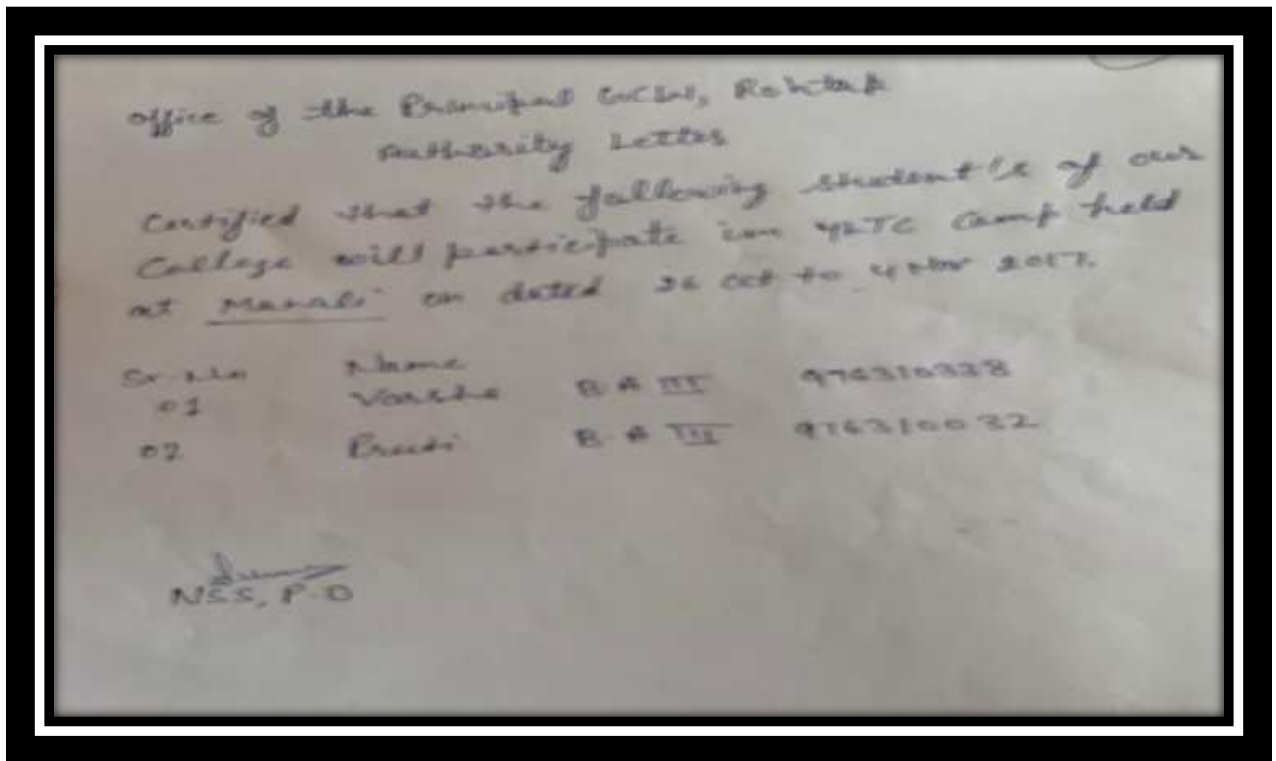 Office of the Principal GCW, Rohtak
Authority Letter
Certified that the following student's of our
College will participate in YLTC Camp held
at Manali on dated 26 Oct to 4 Nov 2017.
Sr. No Name
01 Varsha B.A III
02 Preeti B.A III
NSS, P.O